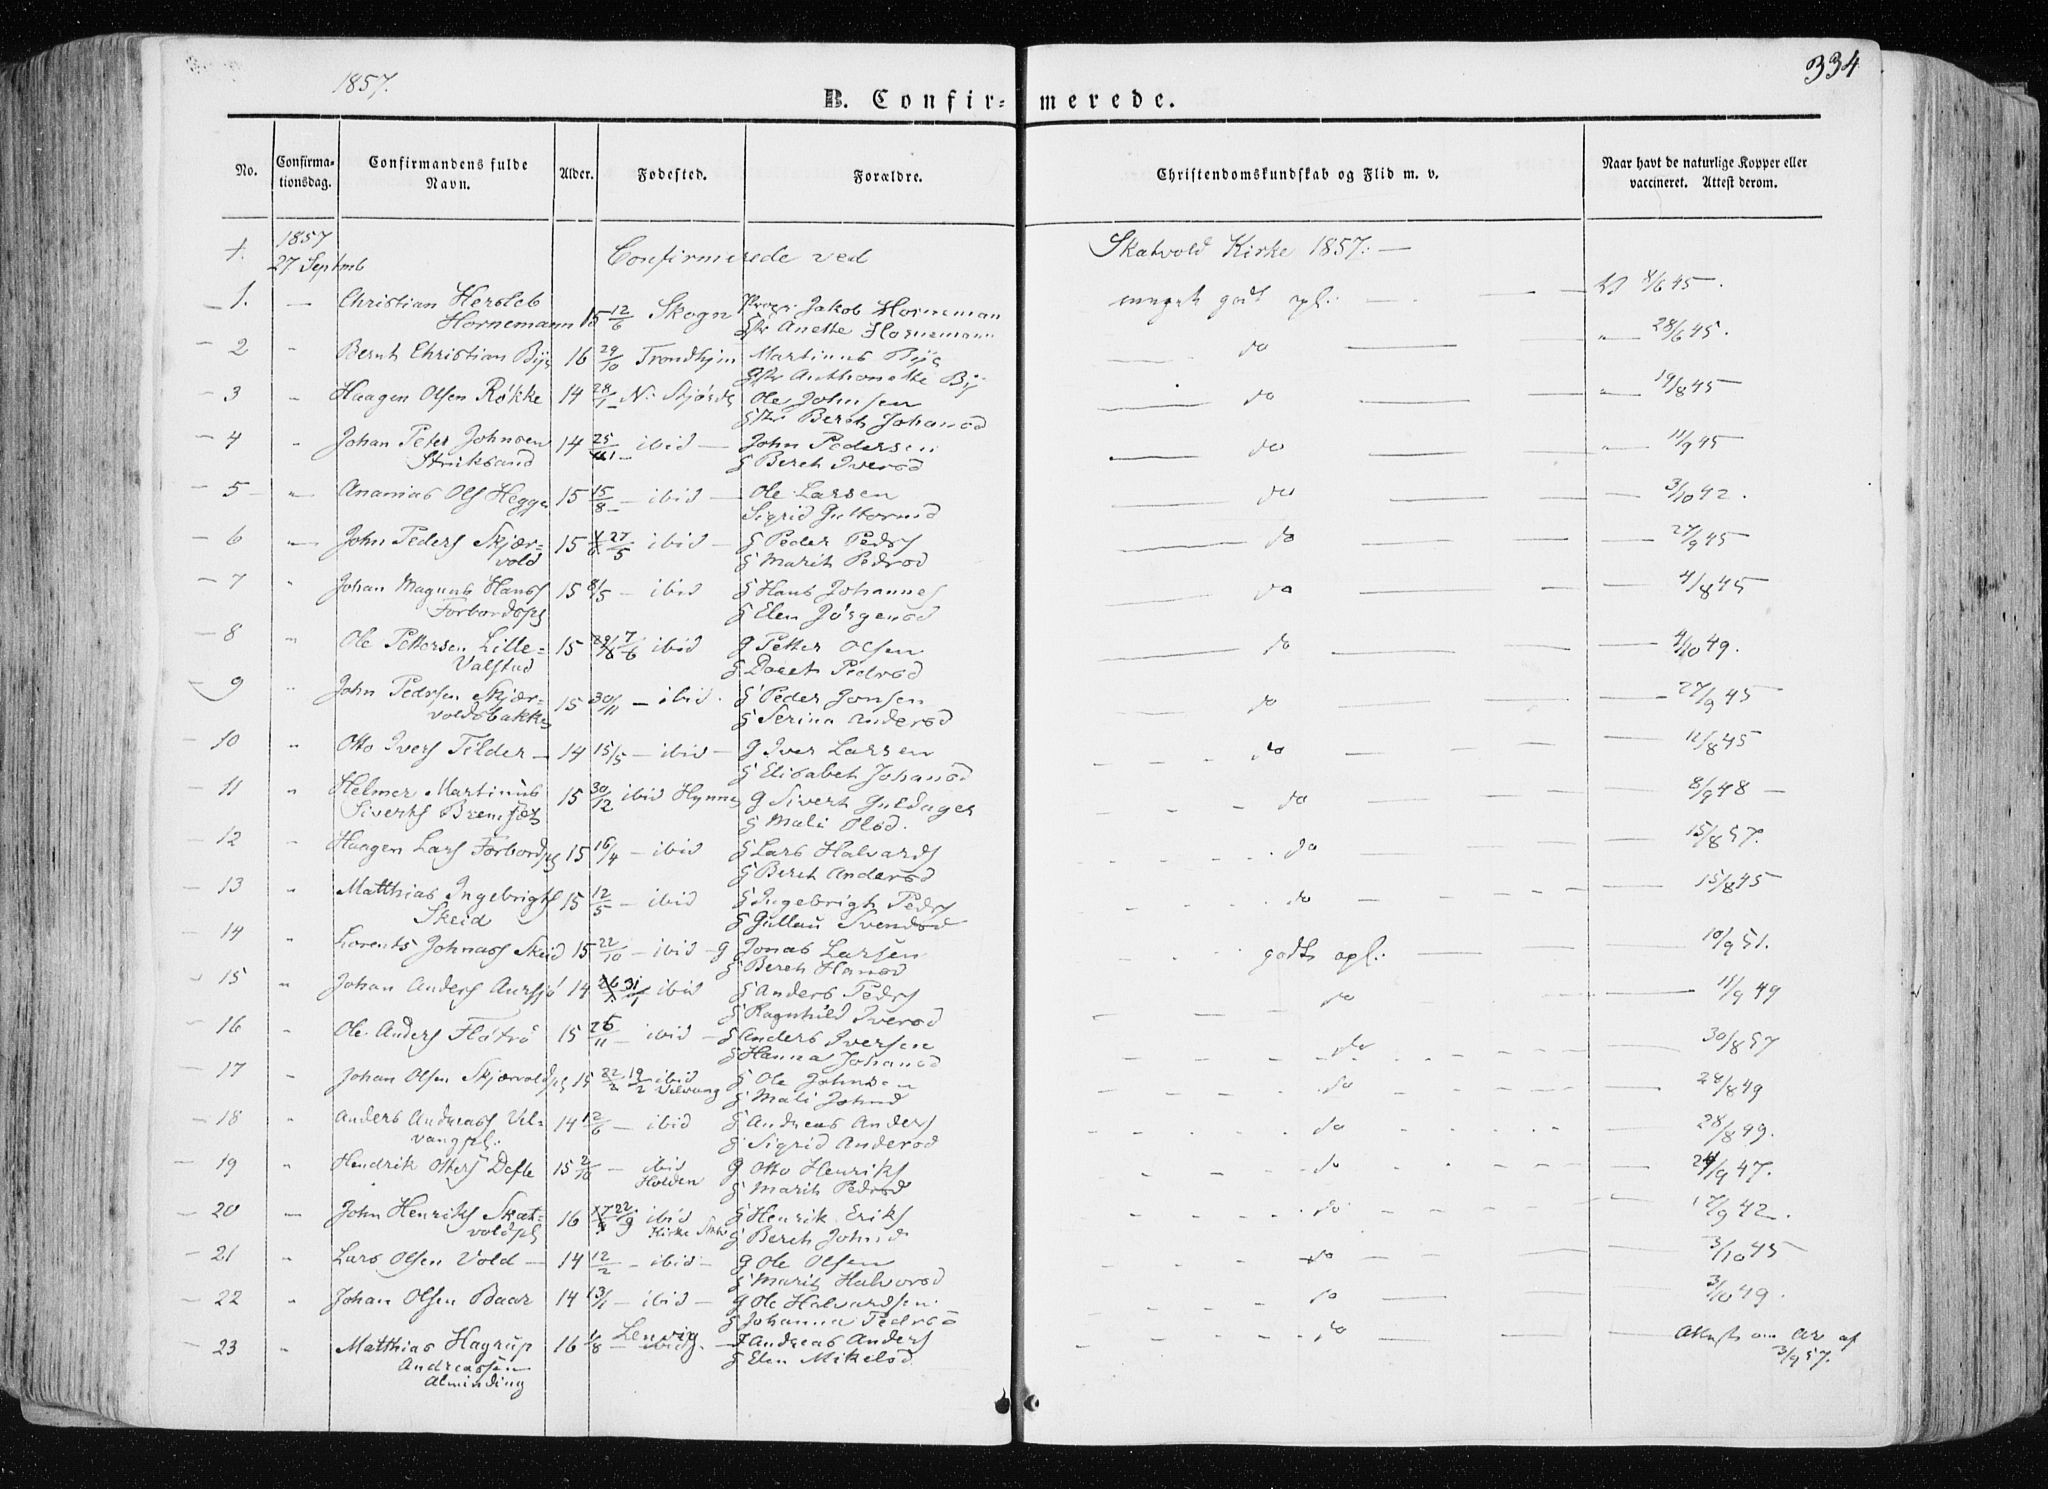 334
1857.
B. Confirmerede.
No. Confirmationsdag. Confirmandens fulde Navn. Alder. Fødested. Forældre. Christendomskundskab og Flid m. v. Naar havt de naturlige Kopper eller vaccineret. Attest derom.
1857
27 Septmb Confirmerede ved Skatvold Kirke 1857.
1. Christian Hersleb 12/6 Skogn Jakob Horneman meget godt opl. 4/6 45.
Hornemann 15 Anette Hornemann
2 " Bernt Christian Bye 16 29/10 Trondhjm Martinus Bye do " 28/6 45.
Anthonette By
3 " Haagen Olsen Røkke 14 28/1 N. Stjørd Ole Johnsen do " 19/8 45
Bereth Johansd
4 " Johan Peter Johnsen 14 25/11 ibid John Pedersen do " 11/9 45
Strikband g Bereth Iversd
5 " Ananias Ols Hegge 15 15/8 ibid Ole Larsen do 3/10 42.
Sigrid Guttormsd
6 John Peders Skjær- 15 27/5 ibid g Peder Peders do 27/9 45
vold g Marith Pedersd
7 " Johan Magnus Hans 15 8/5 ibid g Hans Johannes do 4/8 45
Forbordspl g Elen Jørgensd
8 " Ole Pettersen Lille- 15 7/6 ibid g Petter Olsen do 4/10 49.
Valstad g Doret Pedersd
9 " John Pedersen Skjær- 15 30/11 ibid. g Peder Jonsen do 27/9 45
voldsbakke g Serina Andersd
10 " Otto Ivers Tilder 14 15/5 ibid g Iver Larsen do 12/8 45
g Elisabeth Johansd
11 " Helmer Martinus 15 30/12 ibid Hynne g Sivert Guldager do 8/9 48
Siverts g Mali Olsd.
12 " Haagen Lars Forbordspl 15 16/4 ibid g Lars Halvards do 15/8 57.
g Bereth Andersd
13 " Matthias Ingebrigts 15 12/5 ibid g Ingebrigt Peders do 15/8 45
Skeid g Gullau Svendsd
14 " Lorents Johnas Skeid 15 22/10 ibid g Jonas Larsen godt opl. 10/9 51.
g Bereth Hansd
15 " Johan Anders 14 31/1 ibid g Anders Peders do 11/9 49
g Ragnhild Iversd
16 " Ole Anders Fløtrø 15 25/11 ibid g Anders Iversen do 30/8 57
g Hanna Johansd
17 " Johan Olsen Skjærvoldspl 15 19/2 ibid g Ole Johnsen do 28/8 49
Velvang g Mali Johnsd
18 " Anders Andreas Vel- 14 12/6 ibid g Andreas Anders do 28/8 49.
vangspl. g Sigrid Andersd
19 " Hendrik Otters Defle 15 2/10 ibid g Otto Henriks do 24/9 47.
Holden g Marith Pedersd
20 John Henriks Skat- 16 22/9 ibid g Henrik Eriks do 17/9 42.
voldspl Kirke g Bereth Johnsd
21 " Lars Olsen Vold 14 12/2 ibid g Ole Olsen do 3/10 45
g Marith Halvorsd
22 " Johan Olsen Baar 14 13/1 ibid g Ole Halvardsen do 3/10 49.
g Johanna Pedersd
23 " Matthias Hagrup 16 6/8 Lenvig g Andreas Anders do Attest om Ar af
Andreassen ibid g Elen Mikelsd 3/9 57.
Alminding